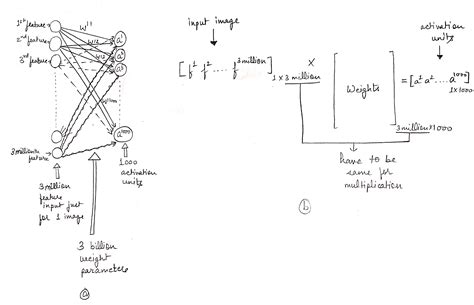 1st feature
2nd feature
3rd feature
w11
a1
a2
a3
a1000
3 million
feature
3 million
feature
input just
for 1 image
1000
activation
units
3 billion
weight
parameters
a
input image
[f1 f2 .... f3million] 1 x 3 million
x
[Weights] 3million x 1000
activation
units
= [a1 a2 .... a1000] 1x1000
have to be
same for
multiplication
b